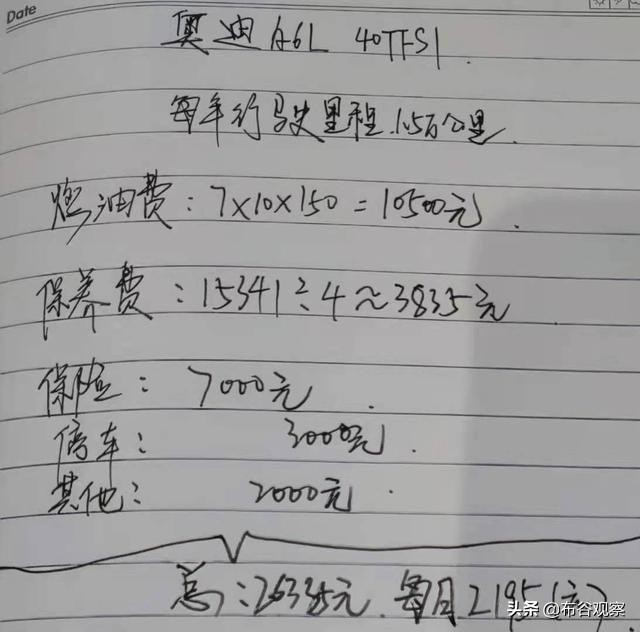 Date
奥迪A6L 40TFSI
每年行驶里程1.5万公里.
燃油费:7×10×150=10500元.
保养费:15341÷4≈3835元
保险:7000元.
停车:3000元.
其他:2000元.
总:26335元.每月2195(元)
头条 @布谷观察